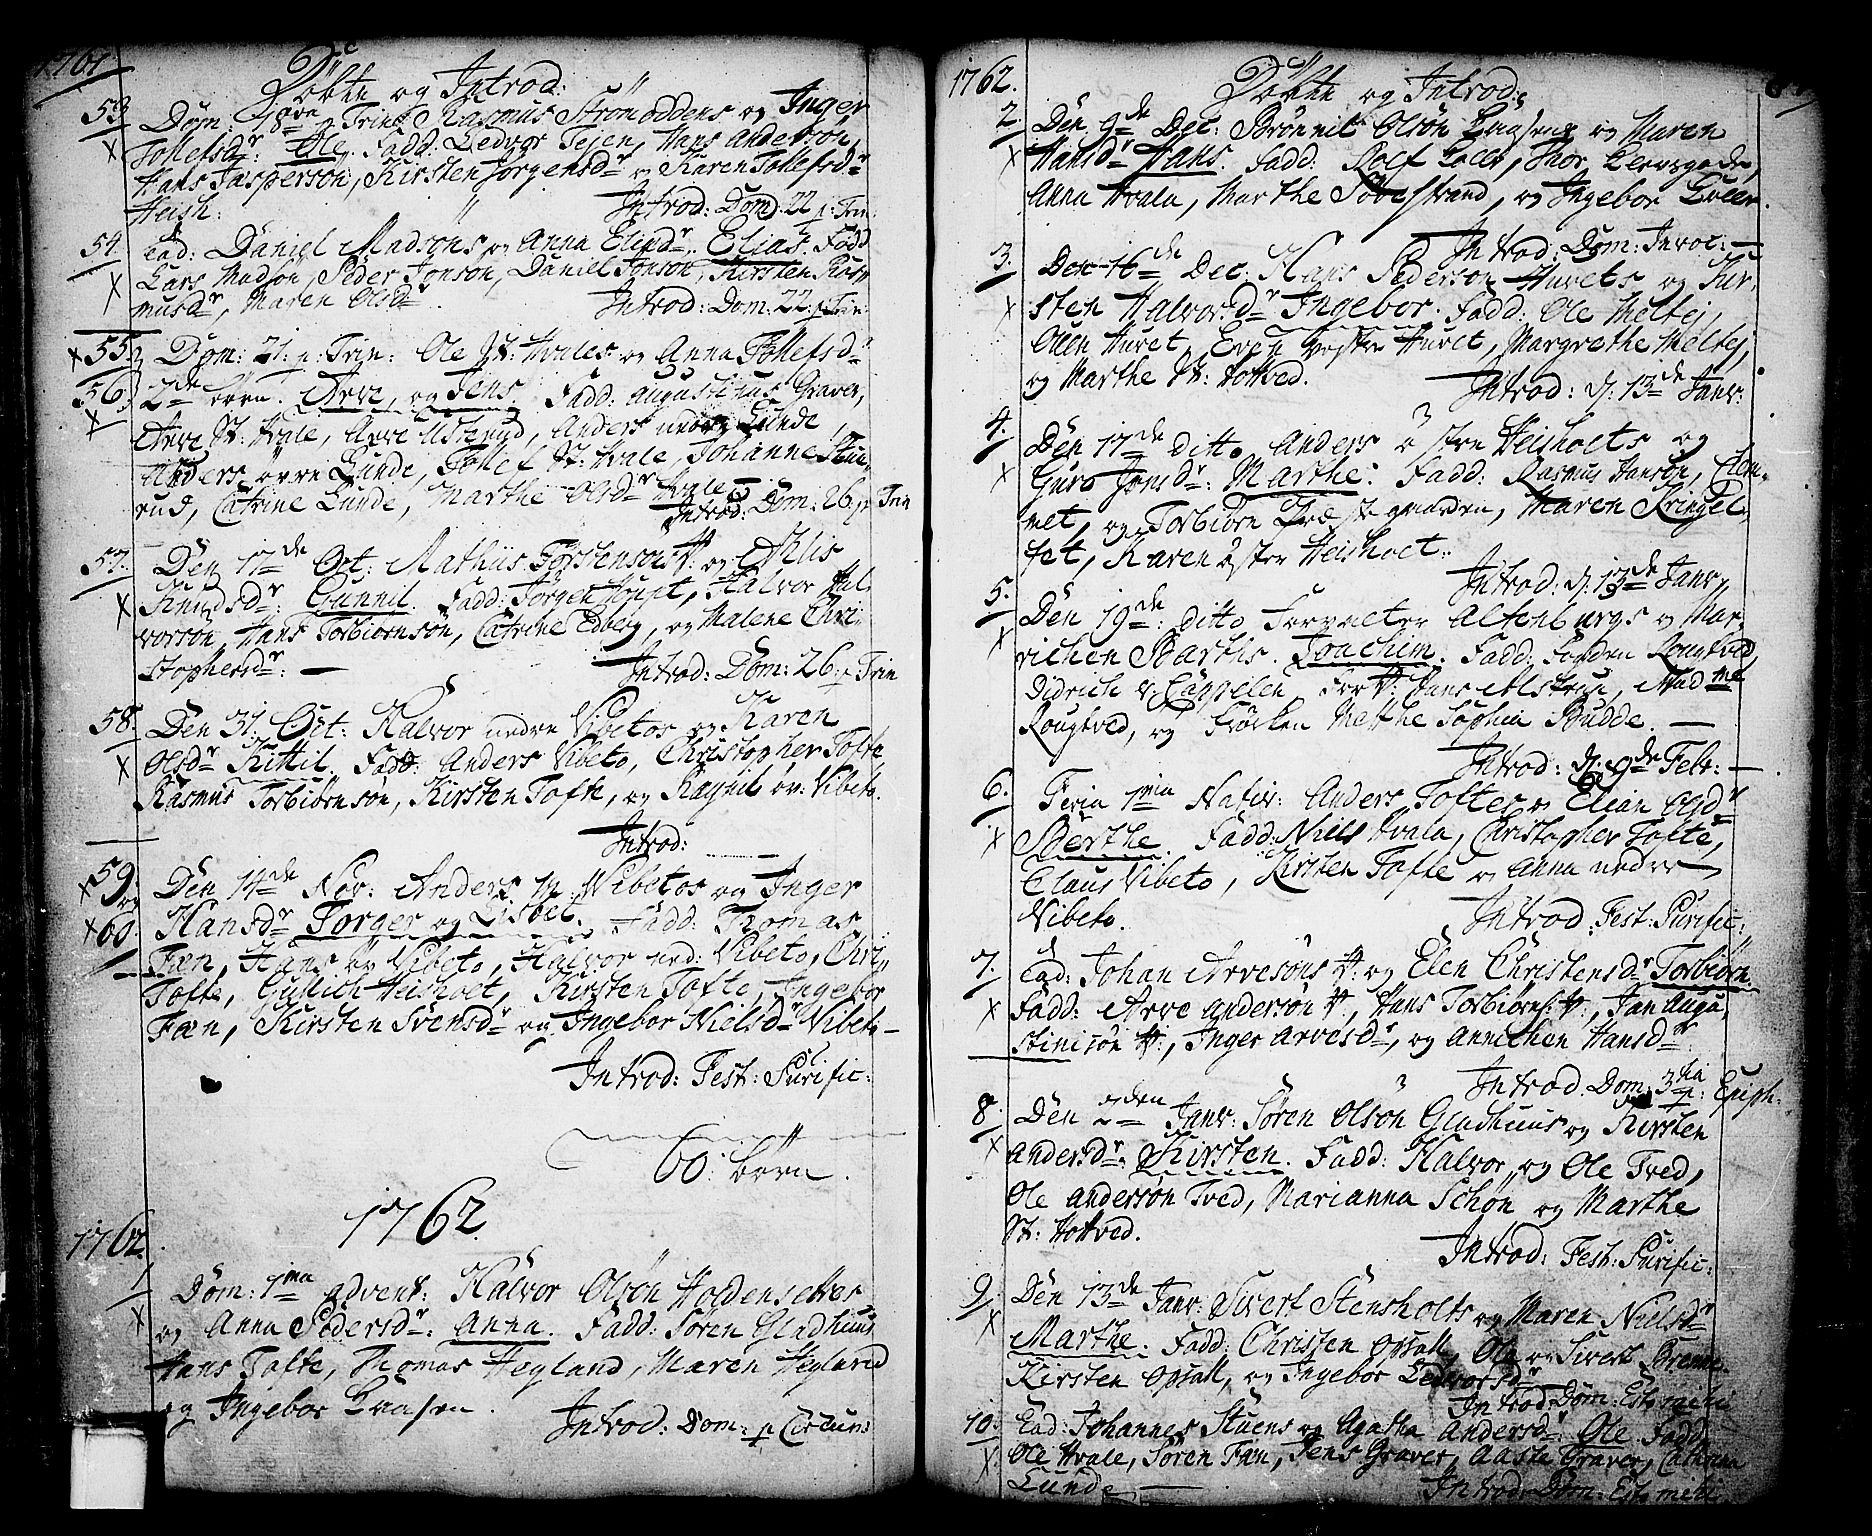 1761
Döbte og Introd:
53. Dom: 18va p Trin: Rasmus Strömoddens og Inger
Tollefsdr: Ole. Fadd: Ledvor Tejen, Hans Anderson,
Hans Jasperson, Kirsten Jörgensdr og Karen Tollefsdr
Heish: Introd: Dom. 22 p. Trin:
54. Ead: Daniel Madsöns og Anna Eliædr. Elias. Fadd
Lars Madsön, Peder Jonsön, Daniel Jonsön, Kirsten Rasmusdr,
Maren Olsdr. Introd: Dom: 22. p Trin:
55. Dom: 21. p: Trin: Ole St: Hvales og Anna Tollefsdr
56. 2de börn. Arve, og Jens. Fadd: Augustinus Graver,
Arve St: Hvale, Arve Ustrud, Anders nedre Lunde,
Anders övre Lunde, Tollef St: Hvale, Johanne
rud, Catrine Lunde, Marthe Olsdr Hvale
Introd: Dom: 26. p Trin
57. Den 17de Oct: Mathiis Torstensöns og Ahlis
Knudsdr: Gunnil. Fadd: Jörgen Houpt, Halvor Hal
vorsön, Hans Torbiörnsön, Catrine Edberg, og Malene Chri
stophersdr: — Introd: Dom: 26. p Trin
58. Den 31. Oct: Halvor nedre Vibetos og Karen
Olsdr Kittil. Fadd: Anders Vibeto, Christopher Tofte,
Rasmus Torbiörnsön, Kirsten Tofte, og Ragnil öv: Vibeto.
Introd:
59 og Den 14de Nov: Anders Vibetos og Inger
60. Hansdr Torger og Lisbet. Fadd: Thomas
Fæn, Hans öv Vibeto, Halvor ned: Vibeto, Chri:
Tofte, Gullich Heisholt, Kirsten Tofte, Ingebor
Fæn, Kirsten Svensdr og Ingebor Nielsdr Vibeto —
Introd: Fest: Purific:
60: börn.
1762.
1762.
1. Dom: 1ma Advent: Halvor Olsön Holdensetter
og Anna Pedersdr: Anna. Fadd: Sören Gladhuus
Hans Tofte, Thomas Hegland, Maren Hegland
og Ingebor Baasen. Introd: Dom: p Circums
1762.
Döbte og Introd:
2. Den 9de Dec: Brönnil Olsön Baasens og Maren
Hansdr Hans. Fadd: Rolf Thor
Anna Hvala, Marthe Söbestrand, og Ingebor
Introd: Dom: Invoc: —
3. Den 16de Dec: Hans Pederson Hurets og Kir,
sten Halvorsdr Ingebor. Fadd: Ole Meltej,
Oven Huret, Even Vestre Huret, Margrethe Meltej,
og Marthe St: Hottved. Introd: d. 13de Janv:
4. Den 17de ditto Anders östre Heisholts og
Guro Jonsdr: Marthe. Fadd: Rasmus Hansön, Clem
met, og Torbiörn Præstegaarden, Maren Kringel,
fet, Karen öster Heisholt.
Introd: d. 13de Janv,
5. Den 19de: ditto Forvalter Altenburgs og Mar
richen Barths. Joachim. Fadd: Fogden Rougtved,
Didrich v: Cappelen, Forv: Hans Alstrup, Madme
Rougtved, og Fröcken Mette Sophia Budde. —
Introd: d. 9de Febr: —
6. Feria 1ma Nativ: Anders Toftes og Elen Olsdr
Berthe. Fadd: Niels Hvala, Christopher Tofte,
Claus Vibeto, Kirsten Tofte og Anna nedre
Vibeto. Introd: Fest: Purific:
7. Ead: Johan Arvesöns og Elen Christensdr Torbiörn.
Fadd: Arve Andersön, Hans Torbiörns:, Jan Augu,
stinisön, Inger Arvesdr, og Annichen Hansdr
Introd: Dom: 3tia p: Epiph.
8. Den 2den Janv: Sören Olsön Gladhuus og Kirsten
Andersdr: Kirsten. Fadd: Halvor og Ole Tved,
Ole Andersön Tved, Marianna Schön og Marthe
St: Hottved. Introd: Fest: Purific:
9. Den 13de Janv: Sivert Stensholts og Maren Nielsdr
Marthe. Fadd: Christen Opsall, Ole og Sivert Breme
Kirsten Opsall, og Ingebor Ledvorsdr
Introd: Dom: Esto mihi
10. Ead: Johannes Stuens og Agatha Andersdr: Ole. Fadd
Ole Hvale, Sören Fæn, Jens Graver, Aaste Graver, Cathrina
Lunde — Introd: Dom: Esto mihi